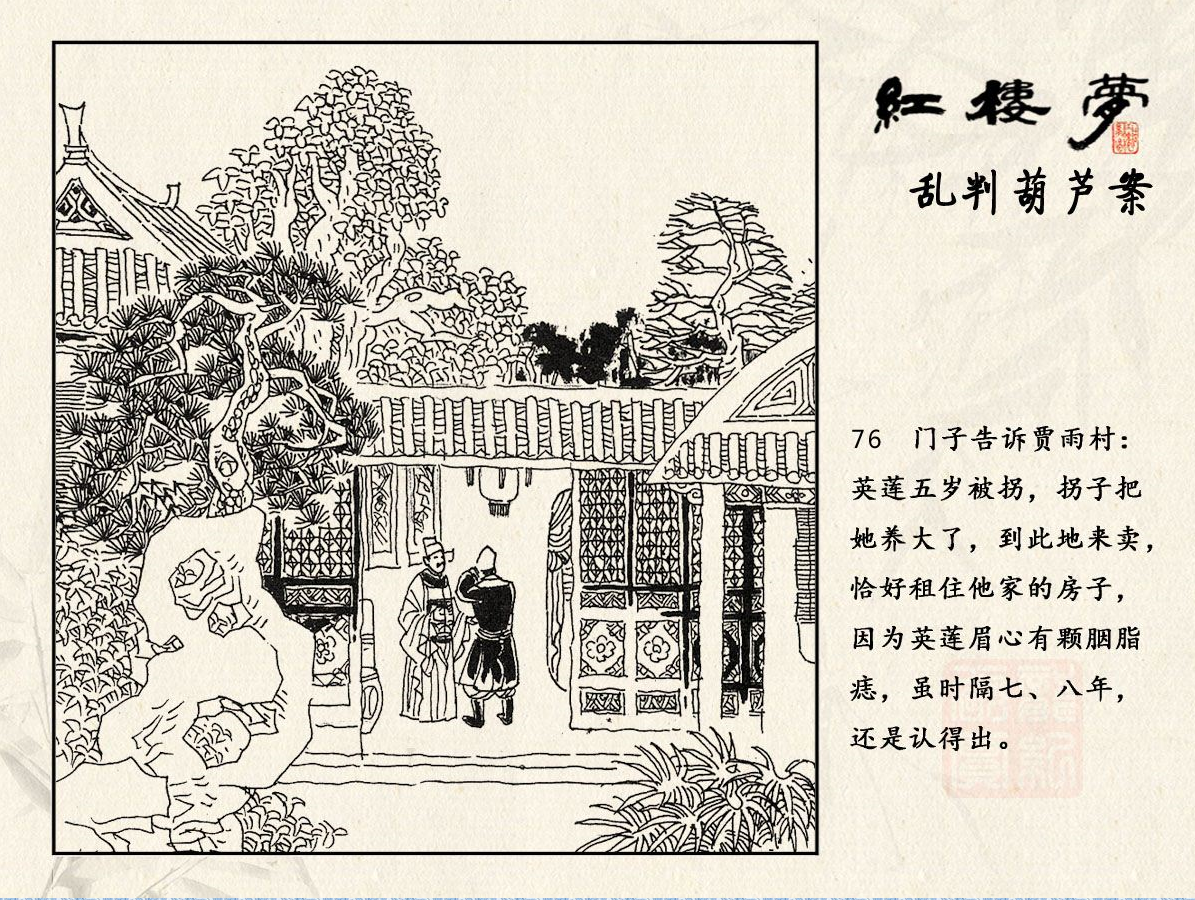 紅樓夢
乱判葫芦案
76 门子告诉贾雨村：
英莲五岁被拐，拐子把
她养大了，到此地来卖，
恰好租住他家的房子，
因为英莲眉心有颗胭脂
痣，虽时隔七、八年，
还是认得出。